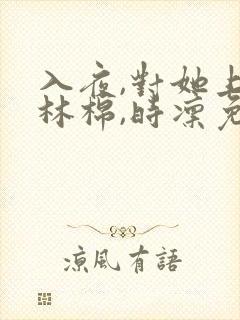 入夜,對她上
林棉,時凜免
凉風有語